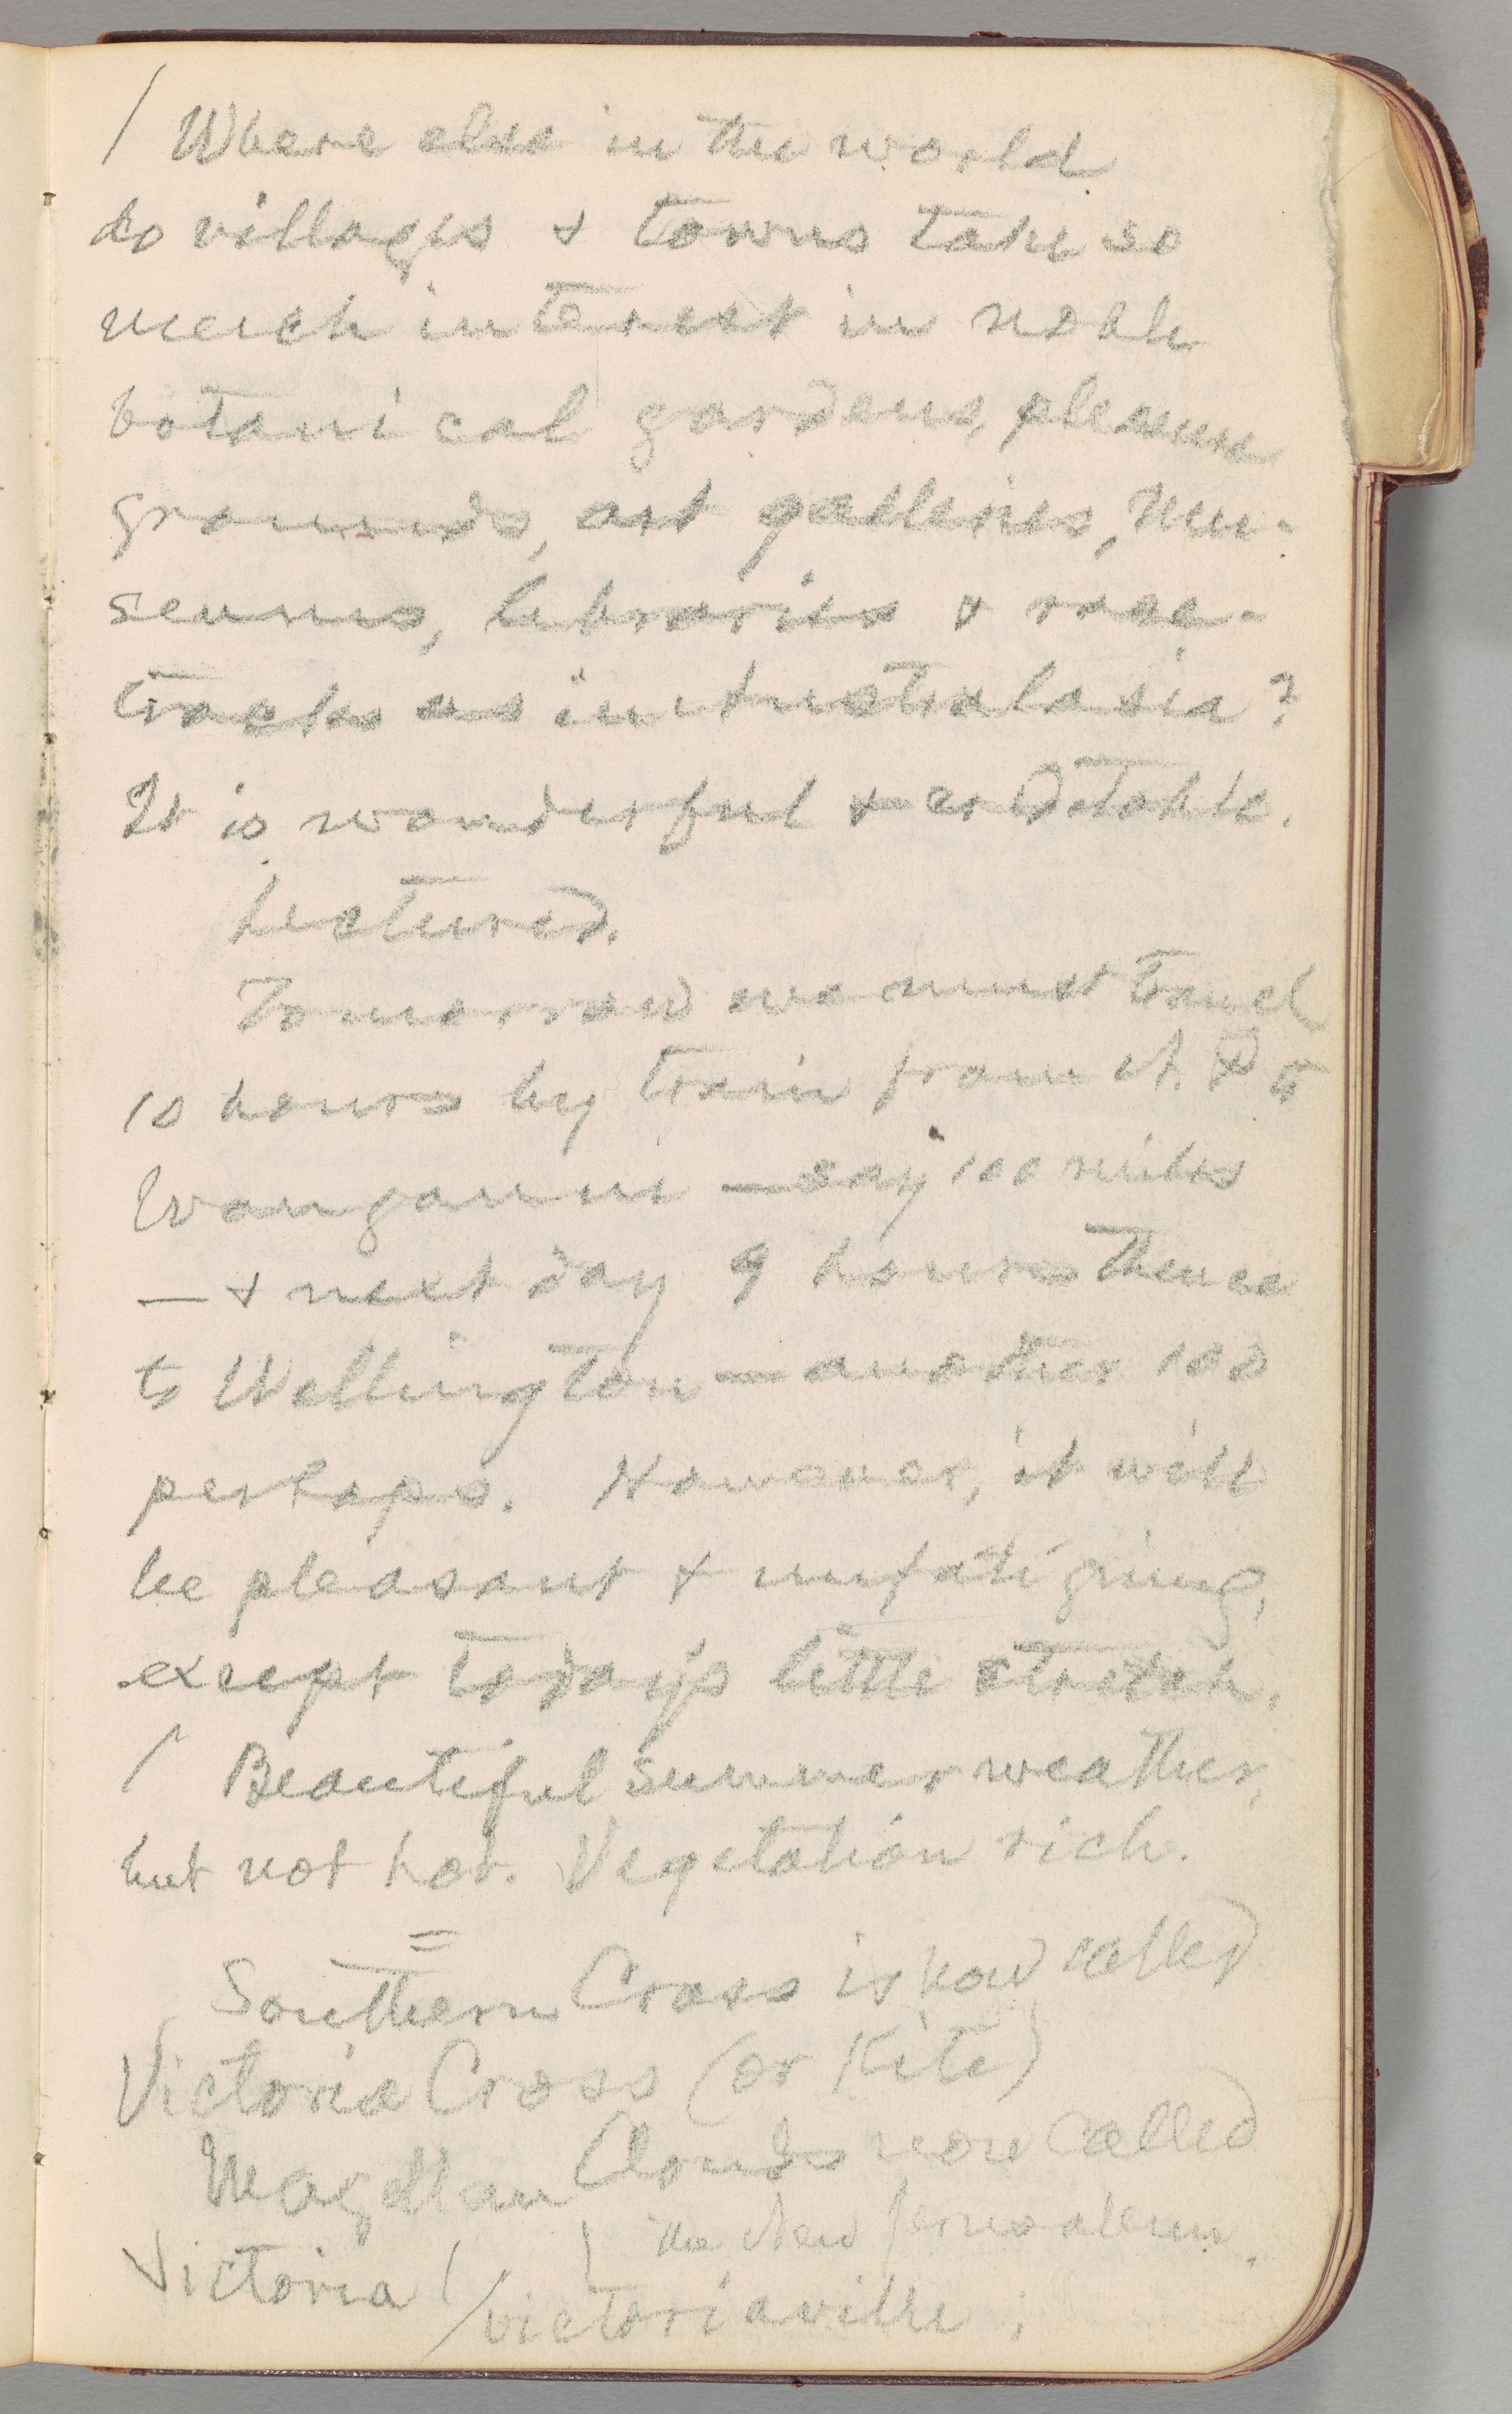 / Where else in the world
do villages & towns take so
much interest in noble
botanical gardens, pleasure
grounds, art galleries, Mu-
seums, libraries & race-
tracks as in Australasia?
It is wonderful & creditable.
Lectured.
Tomorrow we must travel
10 hours by train from N. P. to
Wanganui — say 100 miles
— & next day 9 hours thence
to Wellington — another 100
perhaps. However, it will
be pleasant & unfatiguing,
except today's little stretch.
/ Beautiful summer weather,
but not hot. Vegetation rich.
=
Southern Cross is now called
Victoria Cross (or Kite)
Magellan Clouds now called
the New Jerusalem.
Victoria
Victoriaville;